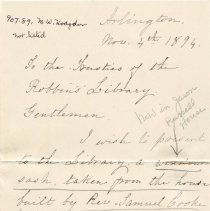 907.89, M.W. Hodgdon
not listed
Arlington.
Nov. 4th 1894.
To the Trustees of the
Robbins Library.
Gentlemen.
Now in Jason
Russell
House
I wish to present
to the Library, a window
sash, taken from the house
built by Rev. Samuel Cooke